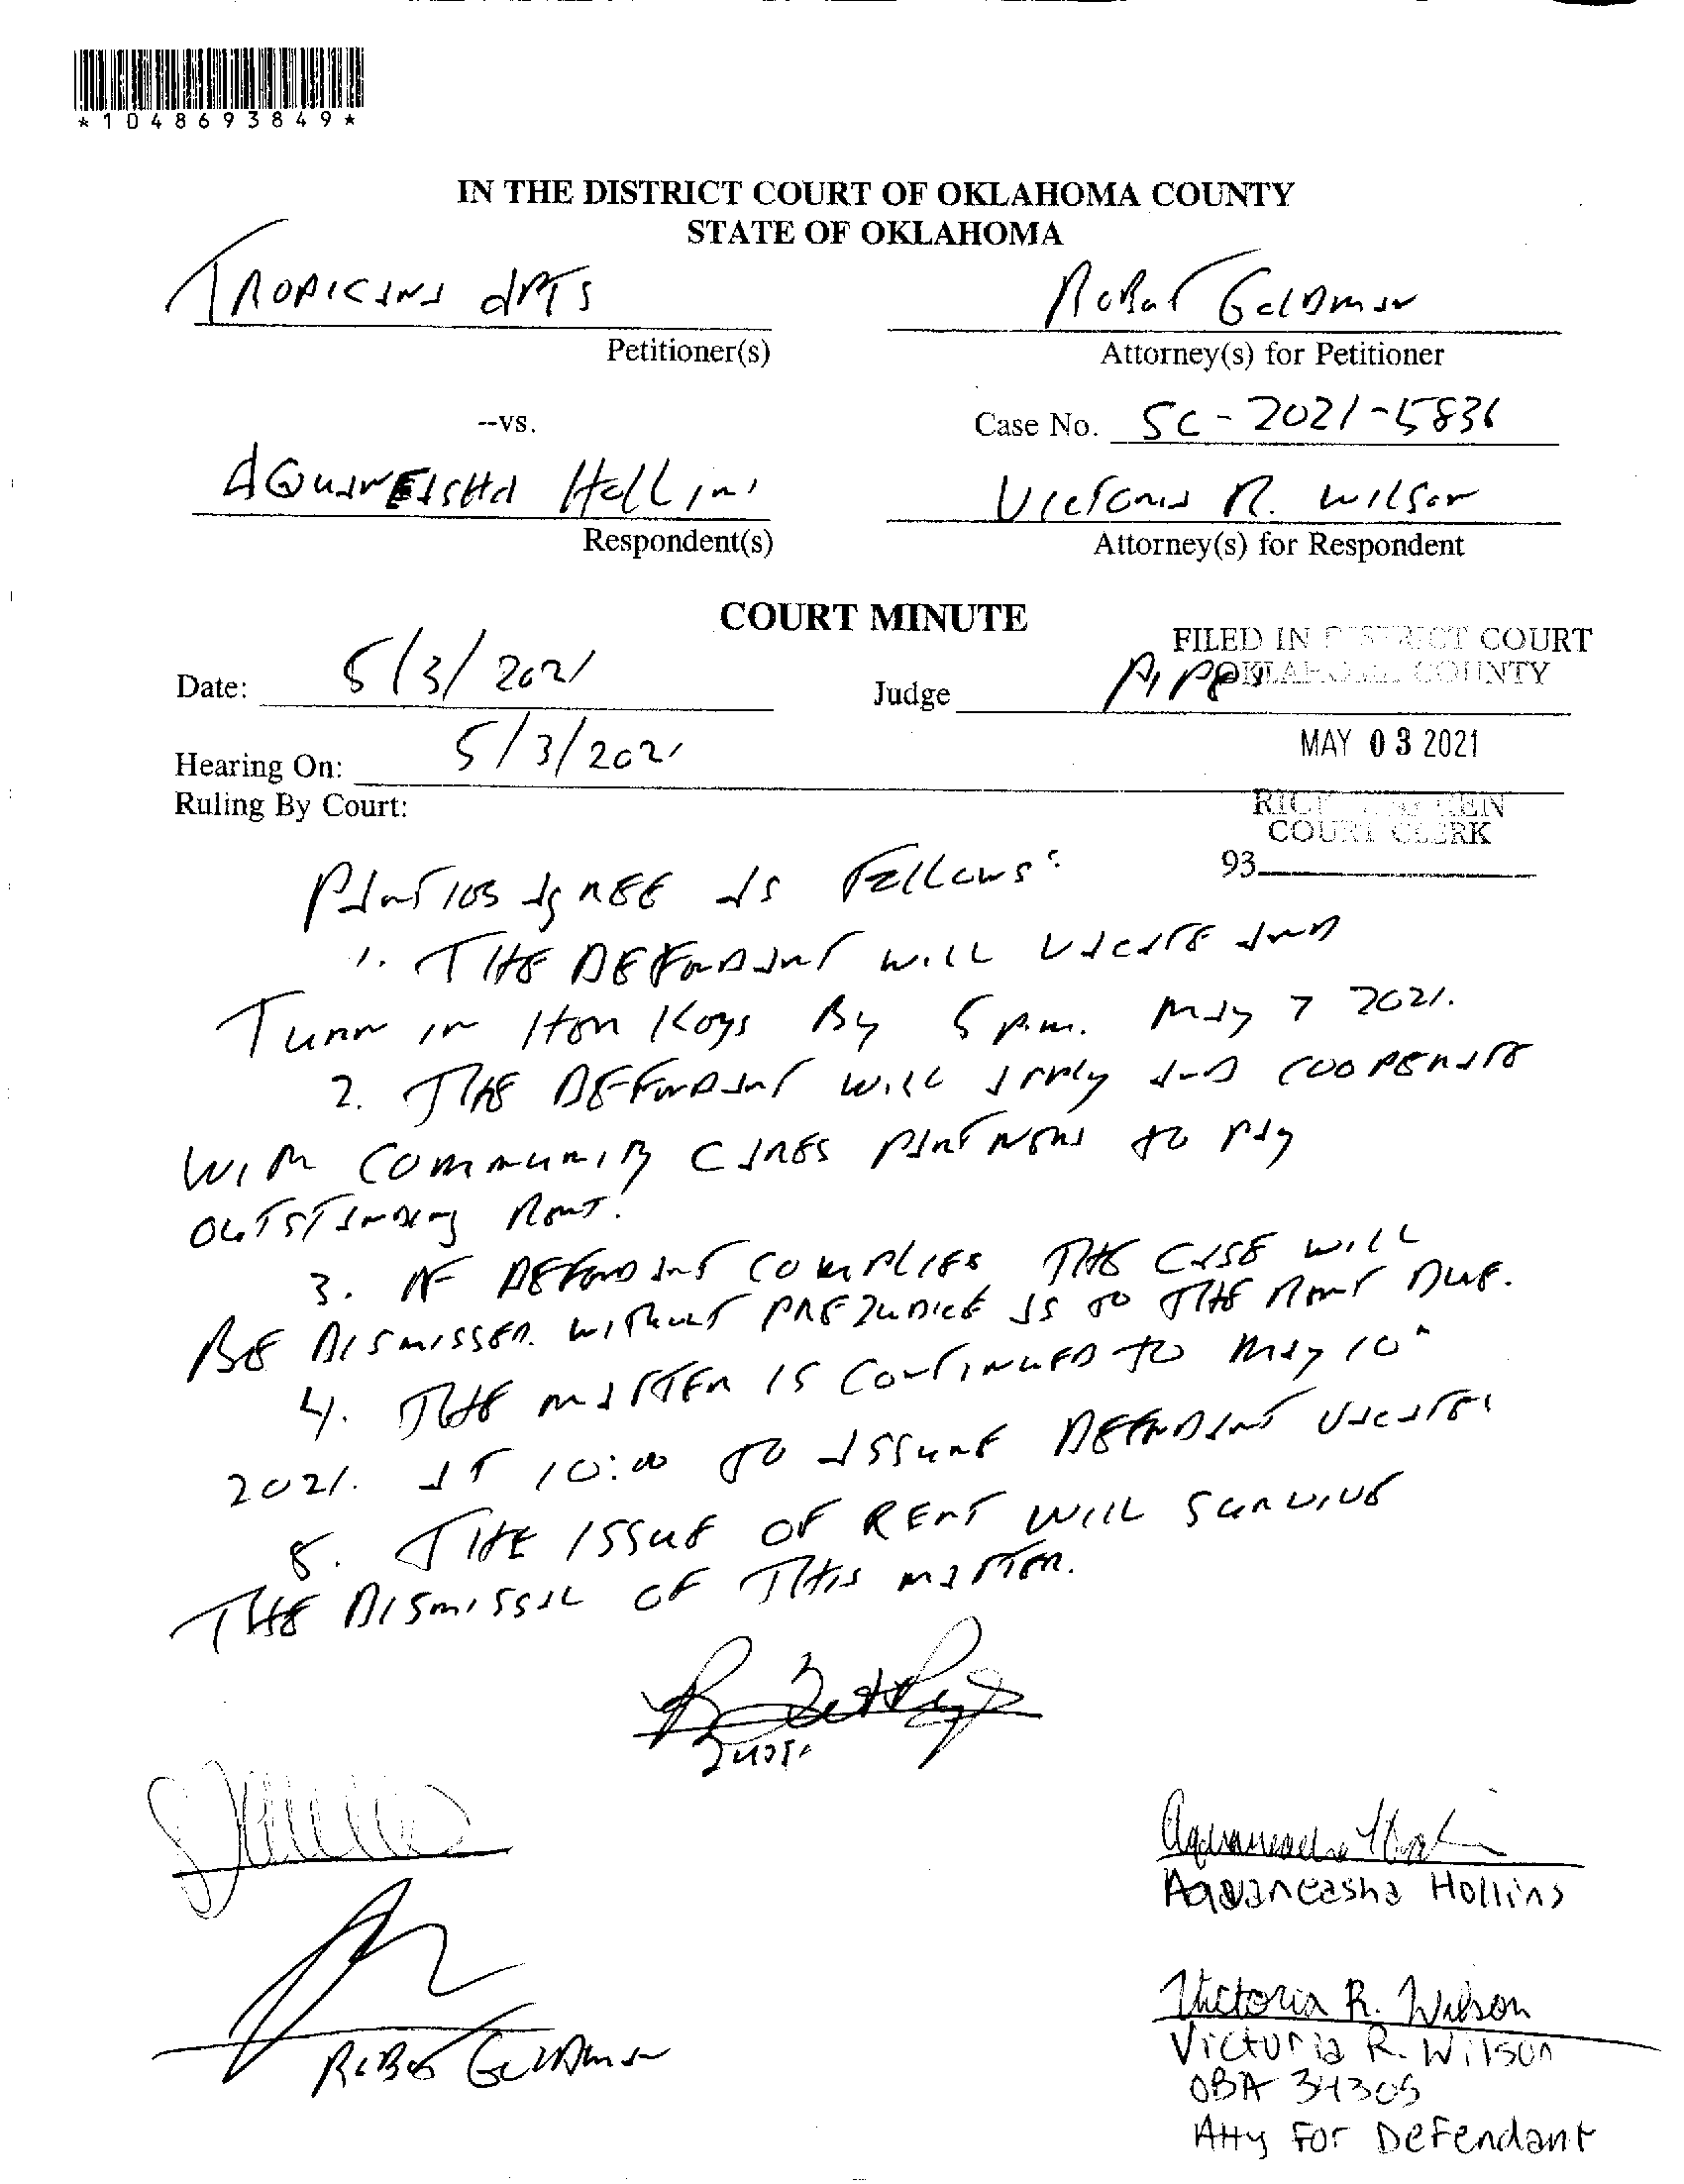 *1048693849*
IN THE DISTRICT COURT OF OKLAHOMA COUNTY
STATE OF OKLAHOMA
TROPICANA APTS
Petitioner(s)
Robert Goldman
Attorney(s) for Petitioner
--vs.
Case No. SC-2021-5836
AQUANEISHA Hollins
Respondent(s)
Victoria R. Wilson
Attorney(s) for Respondent
COURT MINUTE
FILED IN DISTRICT COURT
OKLAHOMA COUNTY
Date: 5/3/2021
Judge
MAY 03 2021
Hearing On: 5/3/2021
Ruling By Court:
COURT CLERK
93
PARTIES AGREE AS FOLLOWS:
1. THE DEFENDANT WILL VACATE AND
TURN IN HER KEYS BY 5 p.m. MAY 7 2021.
2. THE DEFENDANT WILL APPLY AND COOPERATE
WITH COMMUNITY CARES PARTNERS TO PAY
OUTSTANDING RENT.
3. IF DEFENDANT COMPLIES THE CASE WILL
BE DISMISSED. WITHOUT PREJUDICE AS TO THE RENT DUE.
4. THE MATTER IS CONTINUED TO MAY 10
2021. AT 10:00 TO ASSURE DEFENDANT VACATES
5. THE ISSUE OF RENT WILL SURVIVE
THE DISMISSAL OF THIS MATTER.
Judge
Aquaneasha Hollins
Robert Goldman
Victoria R. Wilson
Victoria R. Wilson
OBA 34305
Atty For Defendant